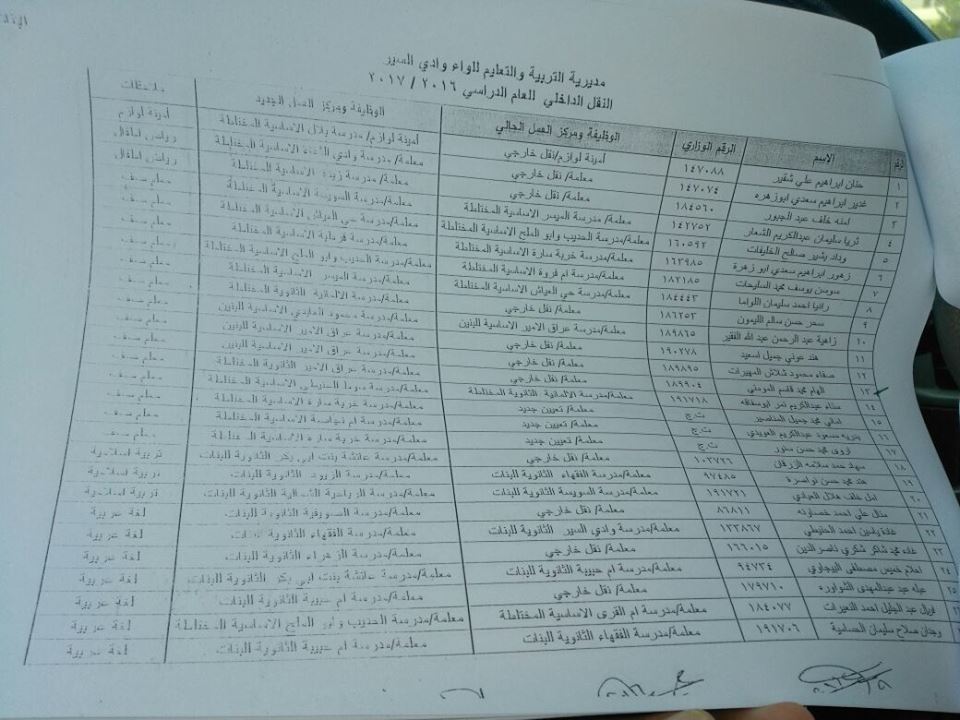 مديرية التربية والتعليم للواء وادي السير
النقل الداخلي للعام الدراسي ٢٠١٦ / ٢٠١٧
رقم الاسم الرقم الوزاري الوظيفة ومركز العمل الحالي الوظيفة ومركز العمل الجديد ملاحظات
١ ابراهيم علي شقير ١٤٧٠٨٨ أمينة لوازم/نقل خارجي أمينة لوازم/ مدرسة الاساسية المختلطة أمينة لوازم
٢ غدير ابراهيم سعدي ابوزهره ١٤٧٠٧٤ معلمة/ نقل خارجي معلمة/ مدرسة وادي الاساسية المختلطة رياض اطفال
٣ امنه خلف عبد الجبور ١٨٤٥٦٠ معلمة/ نقل خارجي معلمة/مدرسة الاساسية المختلطة رياض اطفال
٤ ثريا سليمان عبدالكريم الشعار ١٤٢٧٥٢ معلمة/ مدرسة الميسر الاساسية المختلطة معلمة/مدرسة السويسة الاساسية المختلطة معلم صف
٥ وداد بشير صالح الخليفات ١٦٠٥٩٢ معلمة/مدرسة الحديب وابو الملح الاساسية المختلطة معلمة/مدرسة حي العياش الاساسية المختلطة معلم صف
٦ زهور ابراهيم سعدي ابو زهرة ١٦٣٩٨٥ معلمة/مدرسة خربة سارة الاساسية المختلطة معلمة/مدرسة الاساسية المختلطة معلم صف
٧ سوسن يوسف محمد السليحات ١٨٢١٨٥ معلمة/مدرسة ام فروة الاساسية المختلطة معلمة/مدرسة الحديب وابو الملح الاساسية المختلطة معلم صف
٨ رانيا احمد سليمان اللواما ١٨٤٤٤٣ معلمة/مدرسة حي العياش الاساسية المختلطة معلمة/مدرسة الميسر الاساسية المختلطة معلم صف
٩ سحر حسن سالم الليمون ١٨٦٢٥٣ معلمة/ نقل خارجي معلمة/مدرسة الالمانية الثانوية المختلطة معلم صف
١٠ زاهية عبد الرحمن عبد الله الفقير ١٨٩٨٦٥ معلمة/مدرسة عراق الامير الاساسية للبنين معلمة/مدرسة محمود العابدي الاساسية للبنين معلم صف
١١ هند عوني جميل اسعيد ١٩٠٢٧٨ معلمة/ نقل خارجي معلمة/مدرسة عراق الامير الاساسية للبنين معلم صف
١٢ صفاء محمود شلاش المهيرات ١٨٩٨٩٥ معلمة/ نقل خارجي معلمة/مدرسة عراق الامير الاساسية للبنين معلم صف
١٣ الهام محمد قاسم المومني ١٨٩٩٠٤ معلمة/ نقل خارجي معلمة/مدرسة عراق الامير الثانوية المختلطة معلم صف
١٤ سناء عبدالكريم نمر ١٩١٧١٨ معلمة/مدرسة الالمانية الثانوية المختلطة معلمة/مدرسة الحنيطي الاساسية المختلطة معلم صف
١٥ اماني محمد جميل المناصير ت.ج معلمة/ تعيين جديد معلمة/مدرسة خربة سارة الاساسية المختلطة معلم صف
١٦ مسعود عبدالكريم العويدي ت.ج معلمة/ تعيين جديد معلمة/مدرسة ام الاساسية المختلطة معلم صف
١٧ اروى محمد حسن ت.ج معلمة/ تعيين جديد معلمة/مدرسة خربة سارة الاساسية المختلطة معلم صف
١٨ حمد سلامه الزرقان ١٠٣٧٢٦ معلمة/ نقل خارجي معلمة/مدرسة عائشة بنت ابي بكر الثانوية للبنات تربية اسلامية
١٩ هند محمد حسن نواصرة ٩٧٤٨٥ معلمة/مدرسة الفقهاء الثانوية للبنات معلمة/مدرسة الثانوية للبنات تربية اسلامية
٢٠ امل خلف هلال العبادي ١٩١٧٢١ معلمة/مدرسة السويسة الثانوية للبنات معلمة/مدرسة الثانوية للبنات تربية اسلامية
٢١ منال علي احمد خصاونه ٨٦٨١١ معلمة/ نقل خارجي معلمة/مدرسة الصويفية الثانوية للبنات لغة عربية
٢٢ ياسين احمد الحنيطي ١٣٣٨٦٧ معلمة/مدرسة وادي السير الثانوية للبنات معلمة/مدرسة الفقهاء الثانوية للبنات لغة عربية
٢٣ غاده محمد شاكر شكري ناصر الدين ١٦٦٠١٥ معلمة/ نقل خارجي معلمة/مدرسة الزهراء الثانوية للبنات لغة عربية
٢٤ احلام خميس مصطفى البيجاوي ٩٤٧٣٤ معلمة/مدرسة ام حبيبة الثانوية للبنات معلمة/مدرسة عائشة بنت ابي بكر الثانوية للبنات لغة عربية
٢٥ عبله عبد عبدالمهدي الشواوره ١٧٩٧١٠ معلمة/ نقل خارجي معلمة/مدرسة ام حبيبة الثانوية للبنات لغة عربية
فريال عبد الجليل احمد النعيرات ١٨٤٠٧٧ معلمة/مدرسة ام القرى الاساسية المختلطة معلمة/مدرسة الحديب وابو الملح الاساسية المختلطة لغة عربية
وجدان صلاح سليمان الحسامية ١٩١٧٠٦ معلمة/مدرسة الفقهاء الثانوية للبنات معلمة/مدرسة ام حبيبة الثانوية للبنات لغة عربية